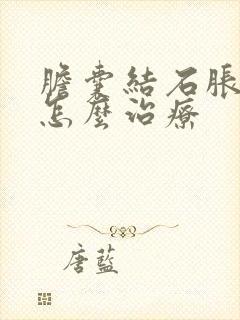 膽囊結石脹
怎麼治療
唐藍